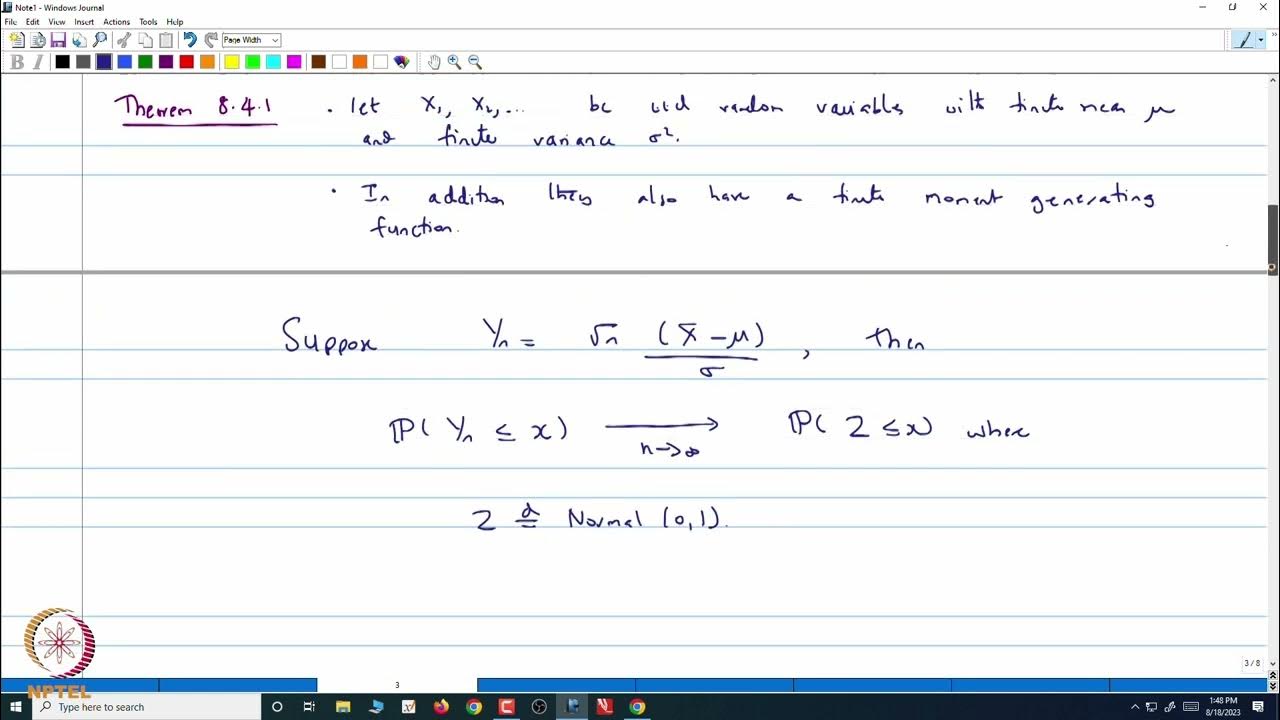 Note1 - Windows Journal
File Edit View Insert Actions Tools Help
Page Width
B I
Theorem 8.4.1 • let X₁, X₂, ... be iid random variables with finite mean μ
and finite variance σ².
• In addition they also have a finite moment generating
function.
Suppose Yₙ = √n (X̄ - μ)/σ , then
ℙ( Yₙ ≤ x) ⟶ n→∞ ℙ( Z ≤ x) where
Z d= Normal (0,1).
3 / 8
3
NPTEL
Type here to search
1:48 PM
8/18/2023